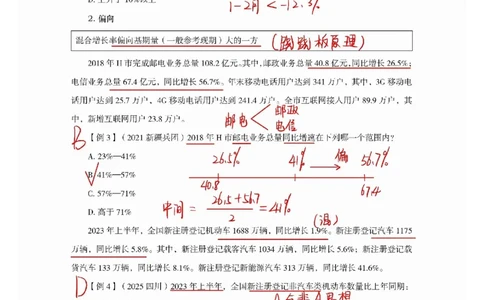 B. 上升 10%以上
1-2月 < -12.3%
2. 偏向
混合增长率偏向基期量(一般参考现期)大的一方 (跷跷板原理)
2018 年 H 市完成邮电业务总量 108.2 亿元。其中,邮政业务总量 40.8 亿元,同比增长 26.5%;
电信业务总量 67.4 亿元,同比增长 56.7%。年末移动电话用户达到 341 万户,其中,3G 移动电
话用户达到 25.7 万户,4G 移动电话用户达到 241.4 万户。全市互联网接入用户 89.9 万户,其
中,新增互联网用户 23.8 万户。
邮电 < 邮政
电信
B【例 3】(2021 新疆兵团)2018 年 H 市邮电业务总量同比增速在下列哪一个范围内?
A. 23%—41%
26.5% 41% 偏 56.7%
B. 41%—57%
40.8 67.4
C. 57%—71%
中间 = 26.5+56.7 / 2 = 41%
D. 高于 71%
(混)
2023 年上半年,全国新注册登记机动车 1688 万辆,同比增长 1.9%。新注册登记汽车 1175
万辆,同比增长 5.8%。其中,新注册登记载客汽车 1034 万辆,同比增长 5.6%;新注册登记载
货汽车 133 万辆,同比增长 8.1%。新注册登记新能源汽车 313 万辆,同比增长 41.6%。
D【例 4】(2025 四川)2023 年上半年,全国新注册登记非汽车类机动车数量比上年同期: